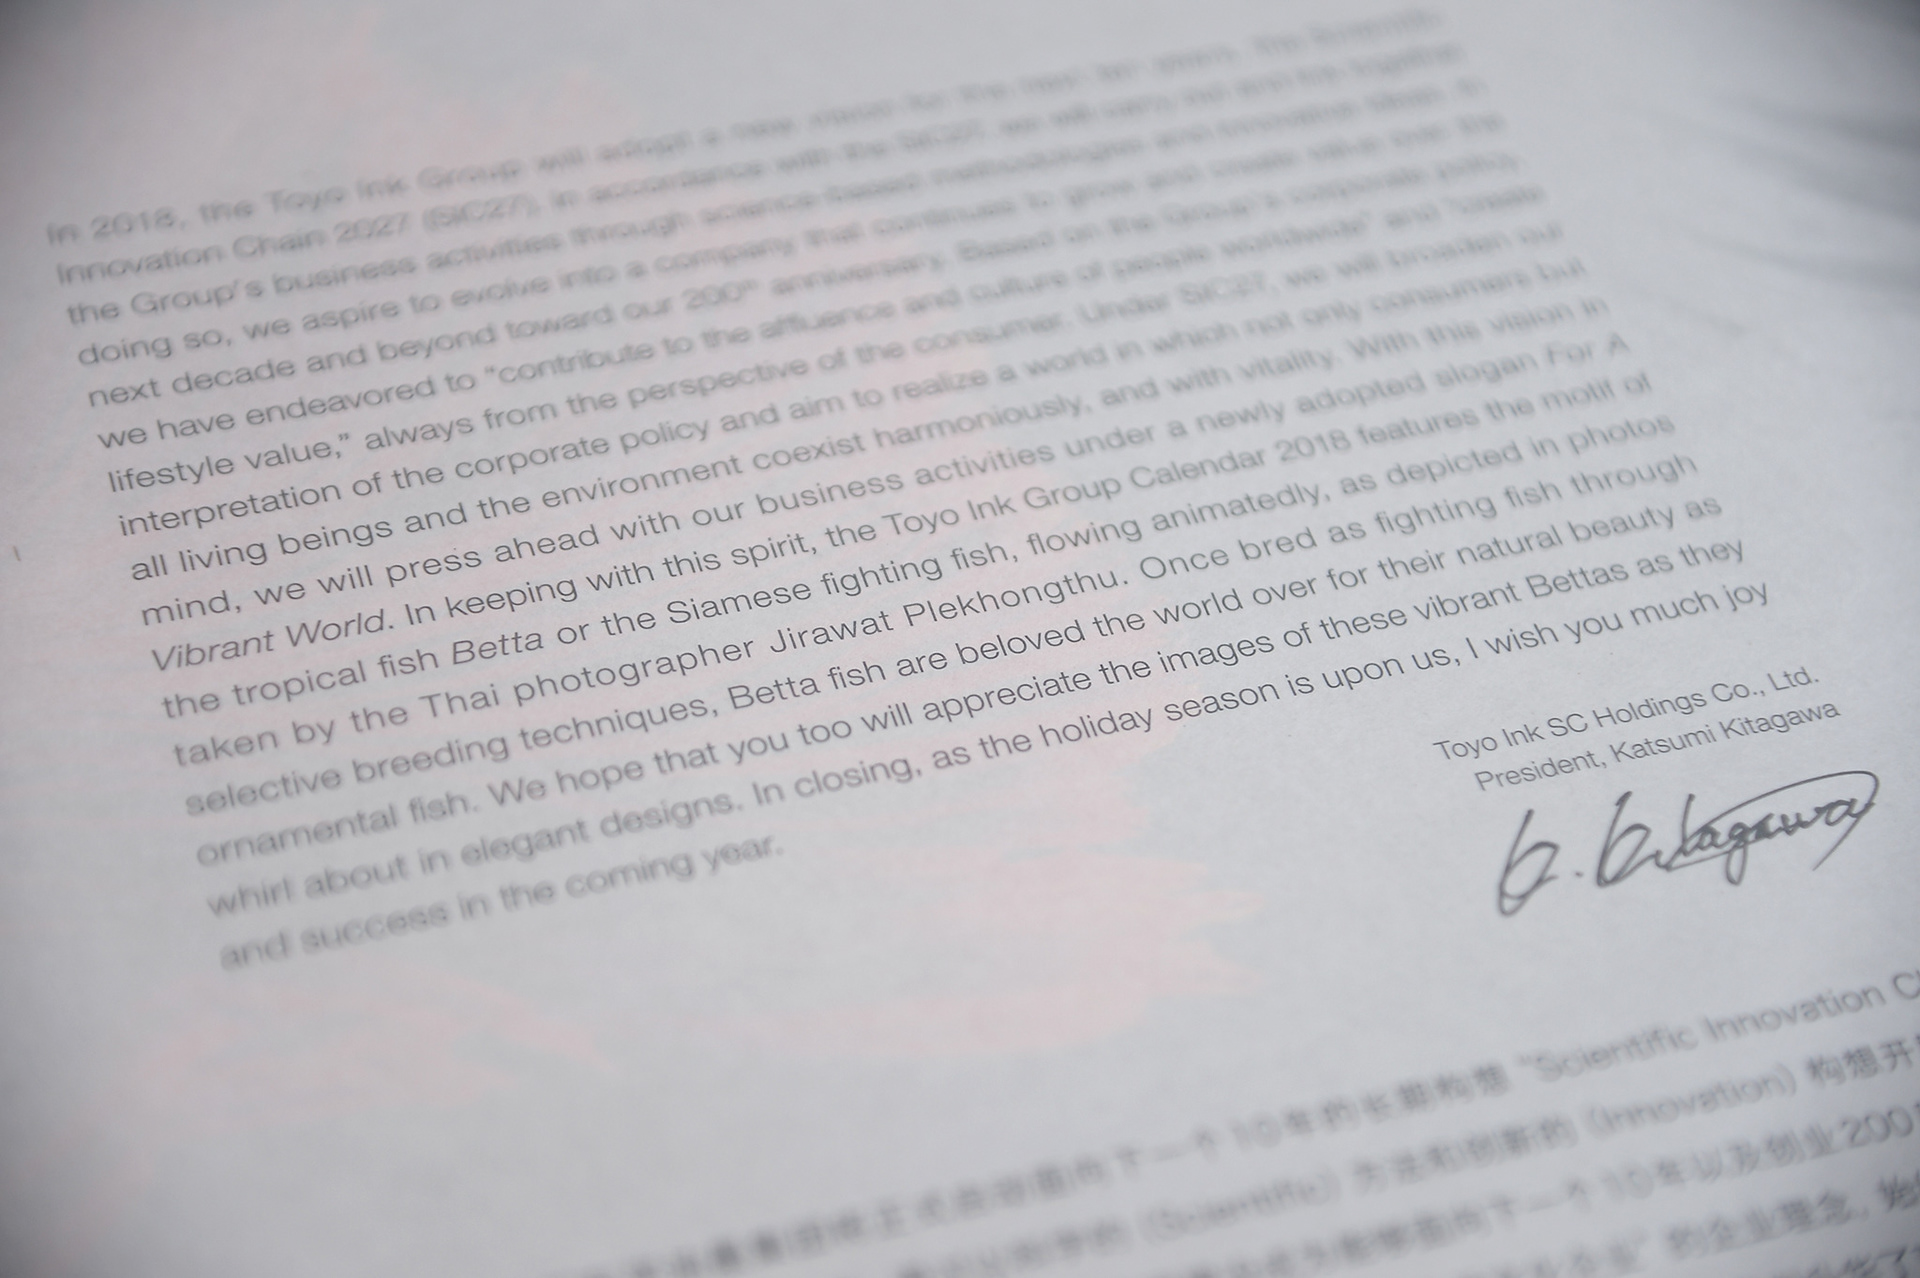 In 2018, the Toyo Ink Group will adopt a new vision for the next ten years, The Scientific
Innovation Chain 2027 (SIC27). In accordance with the SIC27, we will carry out and tie together
the Group's business activities through science-based methodologies and innovative ideas. In
doing so, we aspire to evolve into a company that continues to grow and create value over the
next decade and beyond toward our 200th anniversary. Based on the Group's corporate policy,
we have endeavored to "contribute to the affluence and culture of people worldwide" and "create
lifestyle value," always from the perspective of the consumer. Under SIC27, we will broaden our
interpretation of the corporate policy and aim to realize a world in which not only consumers but
all living beings and the environment coexist harmoniously, and with vitality. With this vision in
mind, we will press ahead with our business activities under a newly adopted slogan For A
Vibrant World. In keeping with this spirit, the Toyo Ink Group Calendar 2018 features the motif of
the tropical fish Betta or the Siamese fighting fish, flowing animatedly, as depicted in photos
taken by the Thai photographer Jirawat Plekhongthu. Once bred as fighting fish through
selective breeding techniques, Betta fish are beloved the world over for their natural beauty as
ornamental fish. We hope that you too will appreciate the images of these vibrant Bettas as they
whirl about in elegant designs. In closing, as the holiday season is upon us, I wish you much joy
and success in the coming year.
Toyo Ink SC Holdings Co., Ltd.
President, Katsumi Kitagawa
K. Kitagawa
面向下一个10年的长期构想 "Scientific Innovation C
(Scientific) 方法和创新的 (Innovation) 构想开
面向下一个10年以及创业200
的企业理念, 始